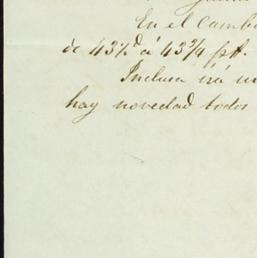 En el Camb
de 43½ á 43¾ pf.
Inclusa irá u
hay novedad todos